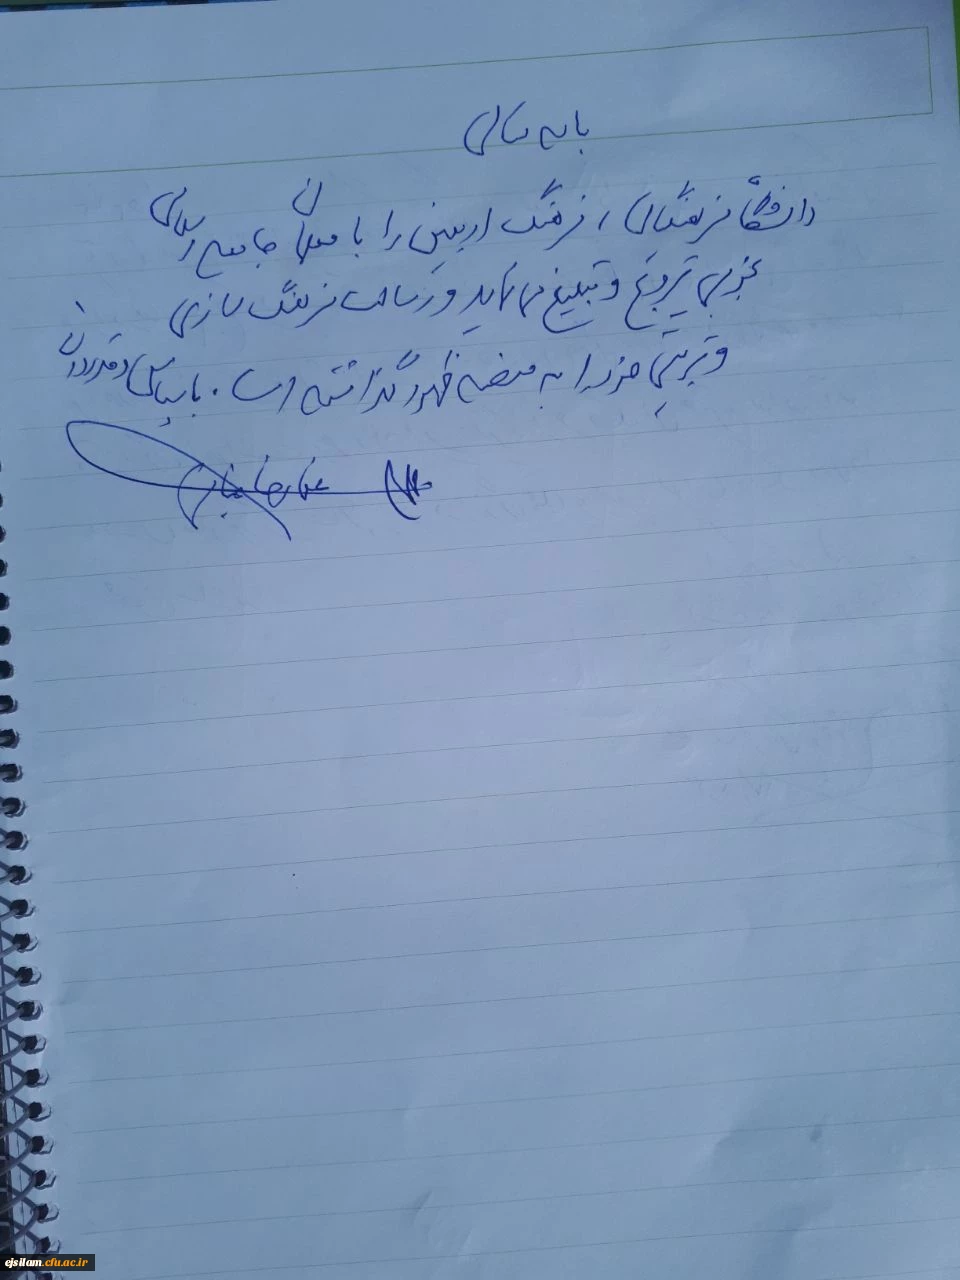 باسمه تعالی
دانشگاه فرهنگیان، فرهنگ اربعین را با جامع اسلامی
بخوبی ترویج و تبلیغ می نماید و رسالت فرهنگ سازی
و تربیتی خود را به منصه ظهور گذاشته است. با سپاس و قدردانی
ejsilam.cfu.ac.ir